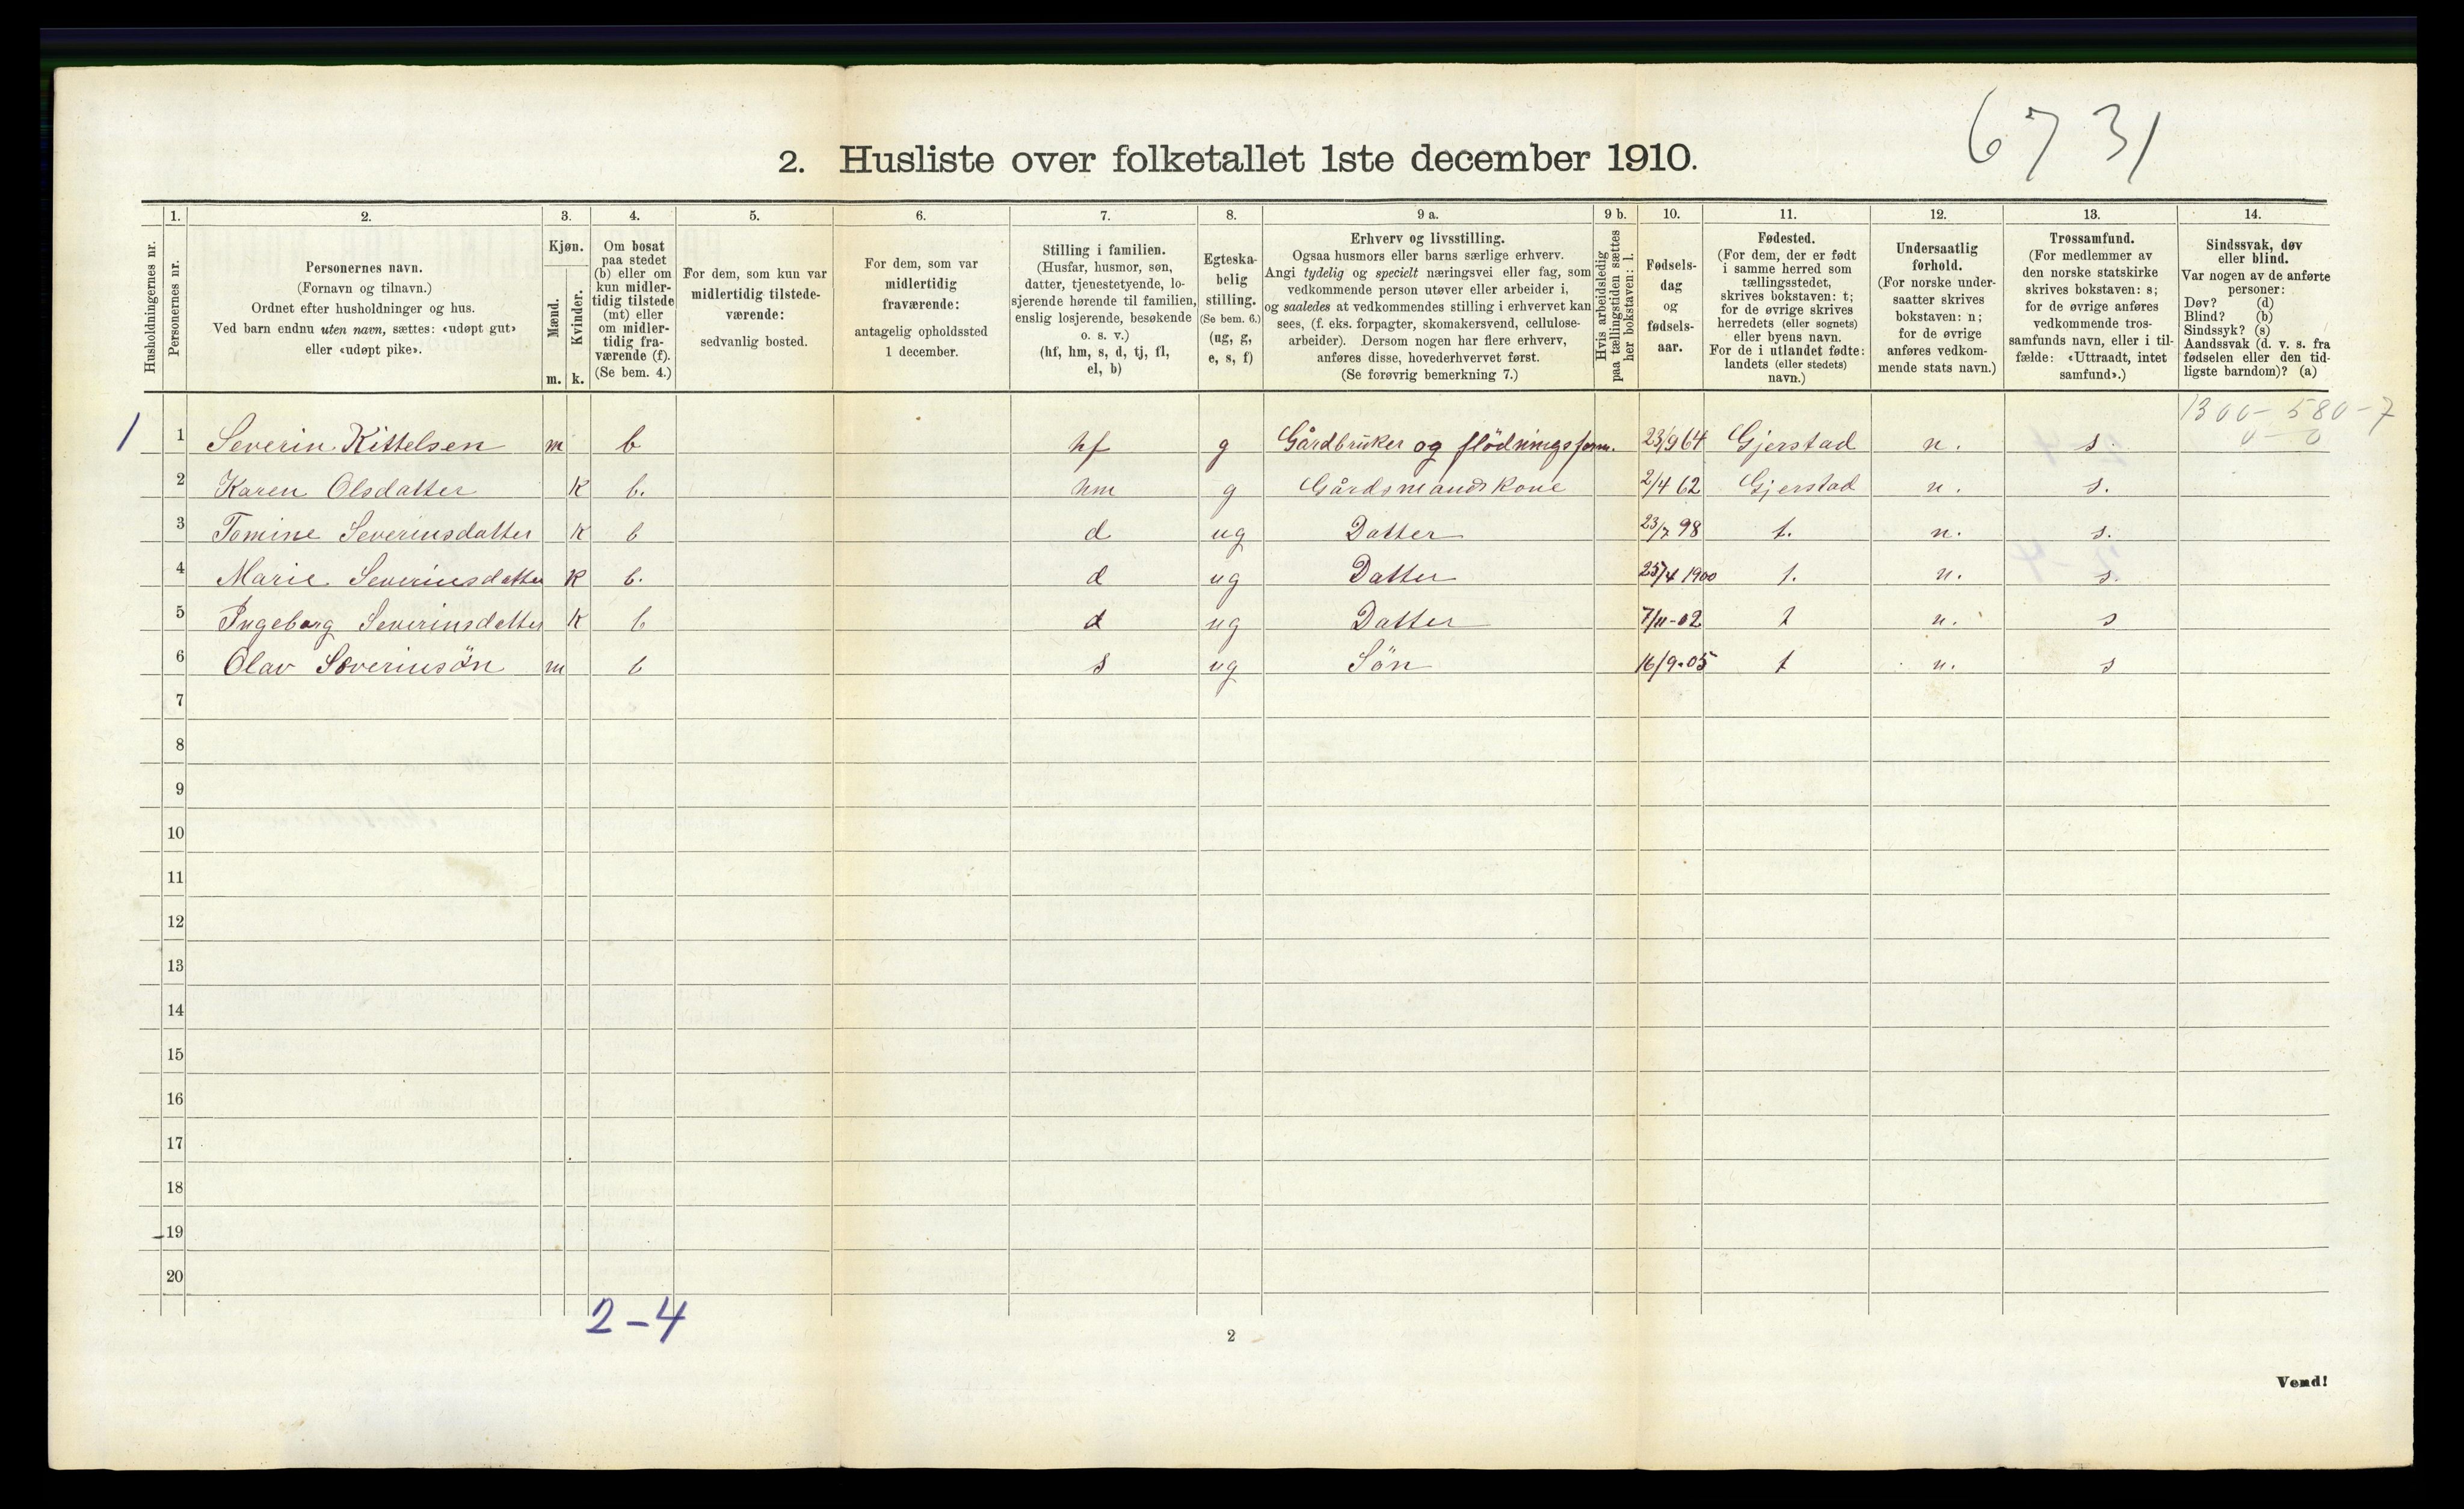 6731
2. Husliste over folketallet 1ste december 1910.
Husholdningernes nr.
1.
Personernes nr.
2.
Personernes navn.
(Fornavn og tilnavn.)
Ordnet efter husholdninger og hus.
Ved barn endnu uten navn, sættes: «udøpt gut»
eller «udøpt pike».
3.
Kjøn.
Mænd.
Kvinder.
m. k.
4.
Om bosat
paa stedet
(b) eller om
kun midler-
tidig tilstede
(mt) eller
om midler-
tidig fra-
værende (f).
(Se bem. 4.)
5.
For dem, som kun var
midlertidig tilstede-
værende:
sedvanlig bosted.
6.
For dem, som var
midlertidig
fraværende:
antagelig opholdssted
1 december.
7.
Stilling i familien.
(Husfar, husmor, søn,
datter, tjenestetyende, lo-
sjerende hørende til familien,
enslig losjerende, besøkende
o. s. v.)
(hf, hm, s, d, tj, fl,
el, b)
8.
Egteska-
belig
stilling.
(Se bem. 6.)
(ug, g,
e, s, f)
9 a.
Erhverv og livsstilling.
Ogsaa husmors eller barns særlige erhverv.
Angi tydelig og specielt næringsvei eller fag, som
vedkommende person utøver eller arbeider i,
og saaledes at vedkommendes stilling i erhvervet kan
sees, (f. eks. forpagter, skomakersvend, cellulose-
arbeider). Dersom nogen har flere erhverv,
anføres disse, hovederhvervet først.
(Se forøvrig bemerkning 7.)
9 b.
Hvis arbeidsledig
paa tællingstiden sættes
her bokstaven: l.
10.
Fødsels-
dag
og
fødsels-
aar.
11.
Fødested.
(For dem, der er født
i samme herred som
tællingsstedet,
skrives bokstaven: t;
for de øvrige skrives
herredets (eller sognets)
eller byens navn.
For de i utlandet fødte:
landets (eller stedets)
navn.)
12.
Undersaatlig
forhold.
(For norske under-
saatter skrives
bokstaven: n;
for de øvrige
anføres vedkom-
mende stats navn.)
13.
Trossamfund.
(For medlemmer av
den norske statskirke
skrives bokstaven: s;
for de øvrige anføres
vedkommende tros-
samfunds navn, eller i til-
fælde: «Uttraadt, intet
samfund».)
14.
Sindssvak, døv
eller blind.
Var nogen av de anførte
personer:
Døv? (d)
Blind? (b)
Sindssyk? (s)
Aandssvak (d. v. s. fra
fødselen eller den tid-
ligste barndom)? (a)
1300-580-7
0-0
1 1 Severin Kittelsen m b hf g Gårdbruker og flödningsform. 23/9 64 Gjerstad n. s.
2 Karen Olsdatter K b. hm g Gårdsmandskone 2/4 62 Gjerstad n. s.
3 Tomine Severinsdatter K b d ug Datter 23/7 98 t. n. s.
4 Marie Severinsdatter K b. d ug Datter 25/4 1900 t. n. s.
5 Ingeborg Severinsdatter K b d ug Datter 7/11-02 t n. s
6 Olav Severinsön m b s ug Sön 16/9-05 t n. s
7
8
9
10
11
12
13
14
15
16
17
18
19
20
2-4
2
Vend!